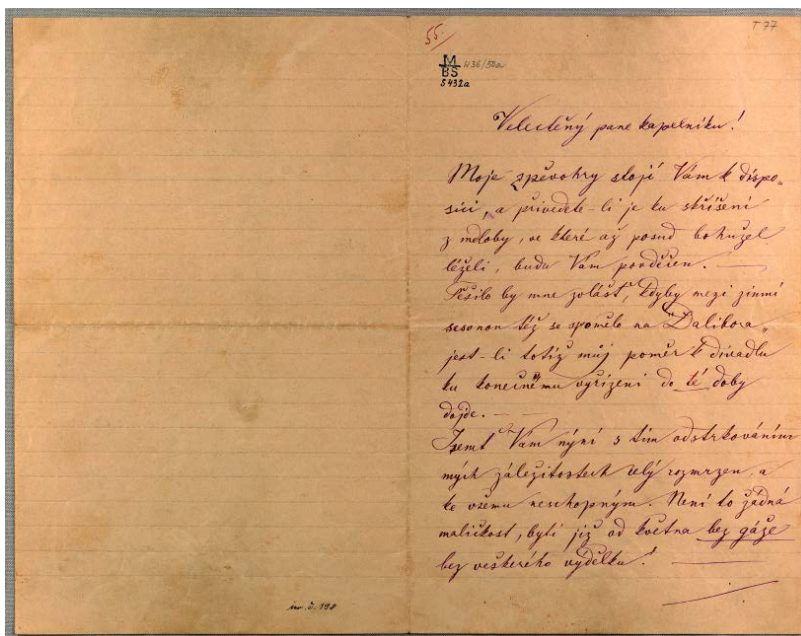 55.
T 77
M
BS
436/52a
S 432a
Velectěný pane kapelníku!
Moje zpěvohry stojí Vám k dispo-
sici, a přivedete-li je ku skříšení
z mdloby, ve které až posud bohužel
leželi, budu Vám povděčen. —
Těšilo by mne zvlášť, kdyby mezi zimní
sesonou též se vpomělo na "Dalibora"
jest-li totiž můj poměr k divadlu
ku konečnému vyřízení do té doby
dojde. — —
Jsemť Vám nyní s tím odstrkováním
mých záležitostech celý rozmrzen, a
ke všemu neschopným. Není to žádná
maličkost, býti již od května bez gáže
bez veškerého výdělku! —
inv. č. 198